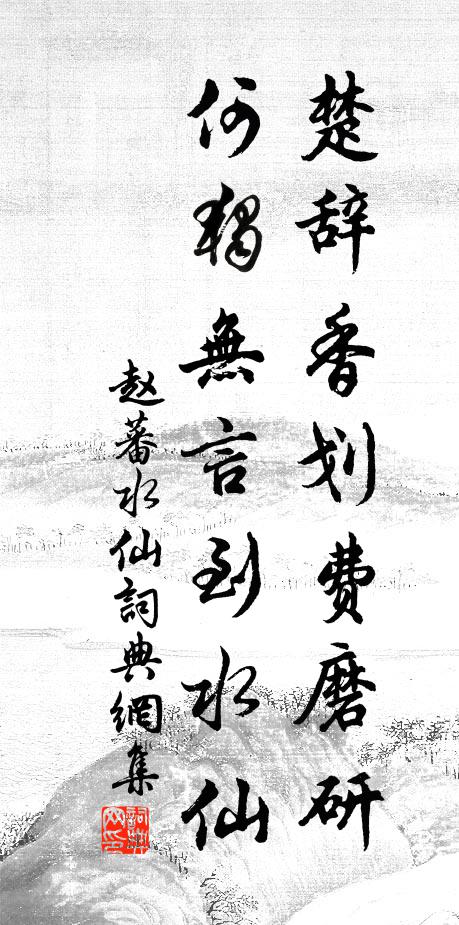 楚辞香划费磨研
何独無言到水仙
赵蕃水仙詞典網集
詞典网印